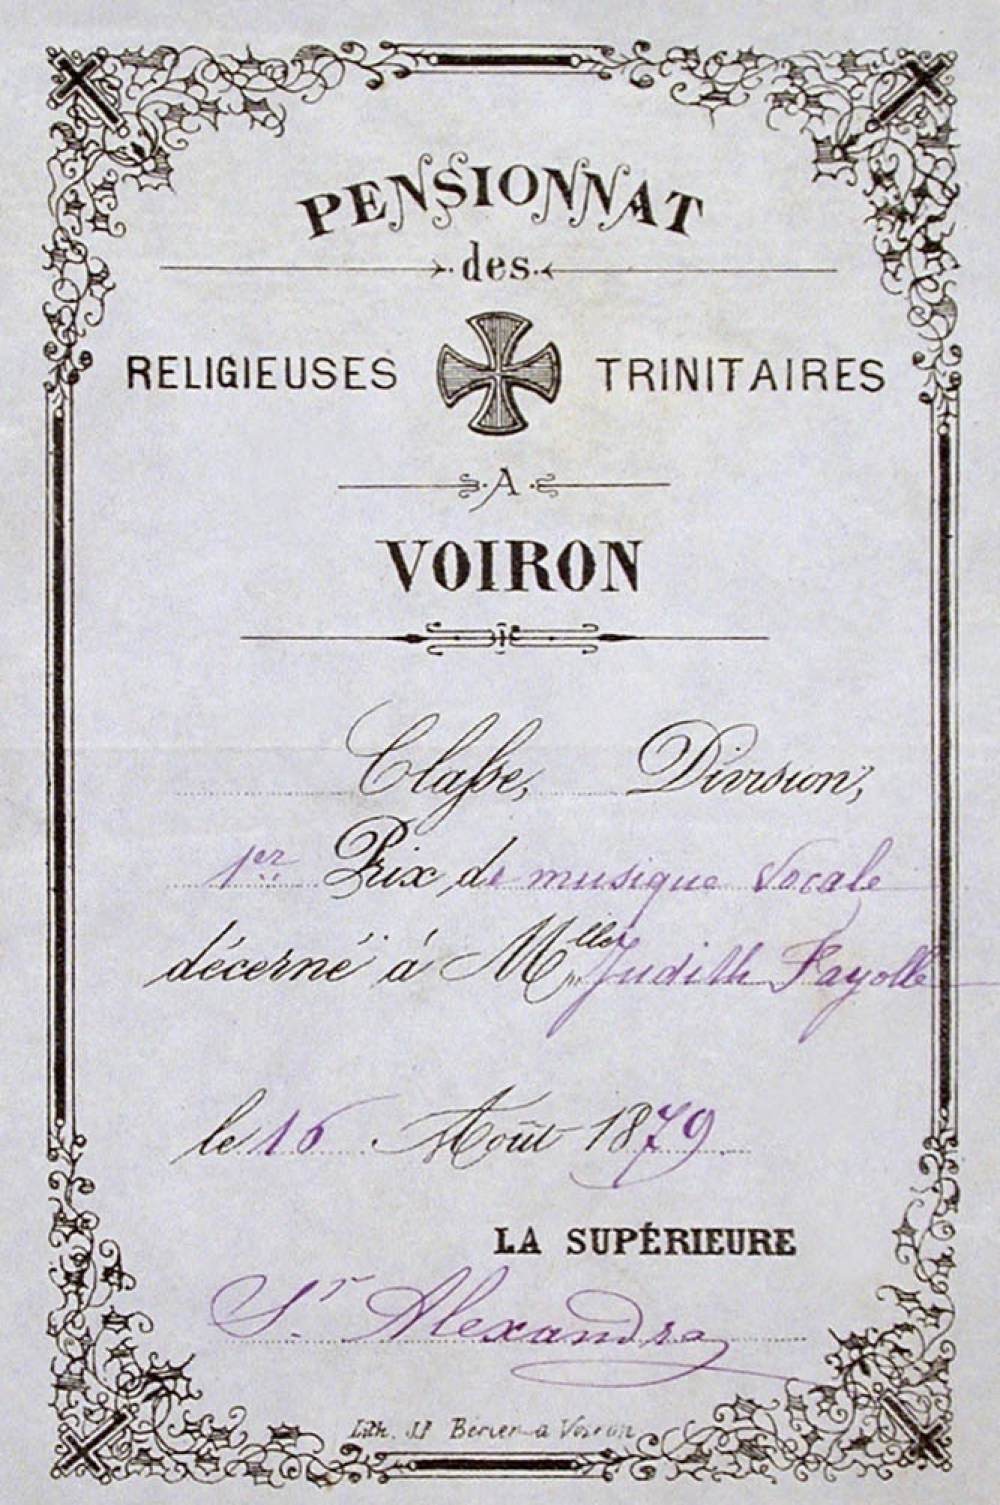 PENSIONNAT
des
RELIGIEUSES TRINITAIRES
A
VOIRON
Classe, Division,
1er Prix de musique Vocale
décerné à Mlle Judith Fayolle
le 16 Août 1879
LA SUPÉRIEURE
Sr Alexandra
Lith. Bérier a Voiron